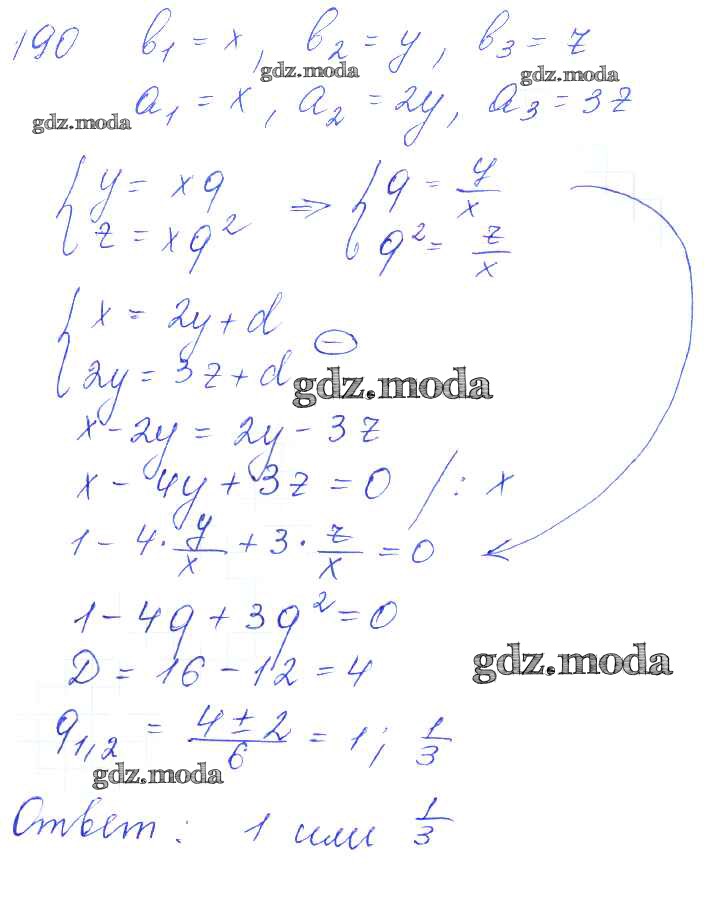 190 b₁ = x, b₂ = y, b₃ = z
gdz.moda gdz.moda
a₁ = x, a₂ = 2y, a₃ = 3z
gdz.moda
{ y = xq ⇒ { q = y/x
z = xq² q² = z/x
{ x = 2y + d
2y = 3z + d ⊖
gdz.moda
x - 2y = 2y - 3z
x - 4y + 3z = 0 / : x
1 - 4 · y/x + 3 · z/x = 0
1 - 4q + 3q² = 0
D = 16 - 12 = 4
gdz.moda
q₁,₂ = (4 ± 2)/6 = 1; 1/3
gdz.moda
Ответ: 1 или 1/3